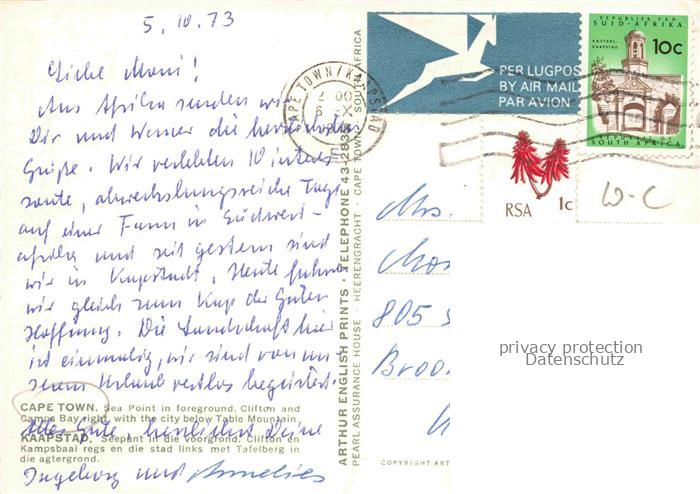 5. IV. 73
Liebe Moni!
Aus Afrika senden wir
Dir und Werner die herzlichsten
Grüße. Wir verlebten 10 interes-
sante, abwechslungsreiche Tage
auf einer Farm in Südwest-
afrika und seit gestern sind
wir in Kapstadt. Heute fahren
wir gleich zum Kap der Guten
Hoffnung. Die Landschaft hier
ist einmalig, wir sind von un-
serem Urlaub restlos begeistert.
CAPE TOWN. Sea Point in foreground, Clifton and
Camps Bay right, with the city below Table Mountain.
Alles Gute, herzlichst Deine
KAAPSTAD. Seepunt in die voorgrond, Clifton en
Kampsbaai regs en die stad links met Tafelberg in
die agtergrond.
Ingeborg und Annelies
ARTHUR ENGLISH PRINTS · TELEPHONE 43-2838
PEARL ASSURANCE HOUSE · HEERENGRACHT · CAPE TOWN · SOUTH AFRICA
COPYRIGHT ART
CAPE TOWN / KAAPSTAD
PER LUGPOS
BY AIR MAIL
PAR AVION
REPUBLIEK VAN
SUID-AFRIKA
KASTEEL,
KAAPSTAD
10c
REPUBLIC OF
SOUTH AFRICA
RSA 1c
W-C
Mrs.
805
Broo
privacy protection
Datenschutz